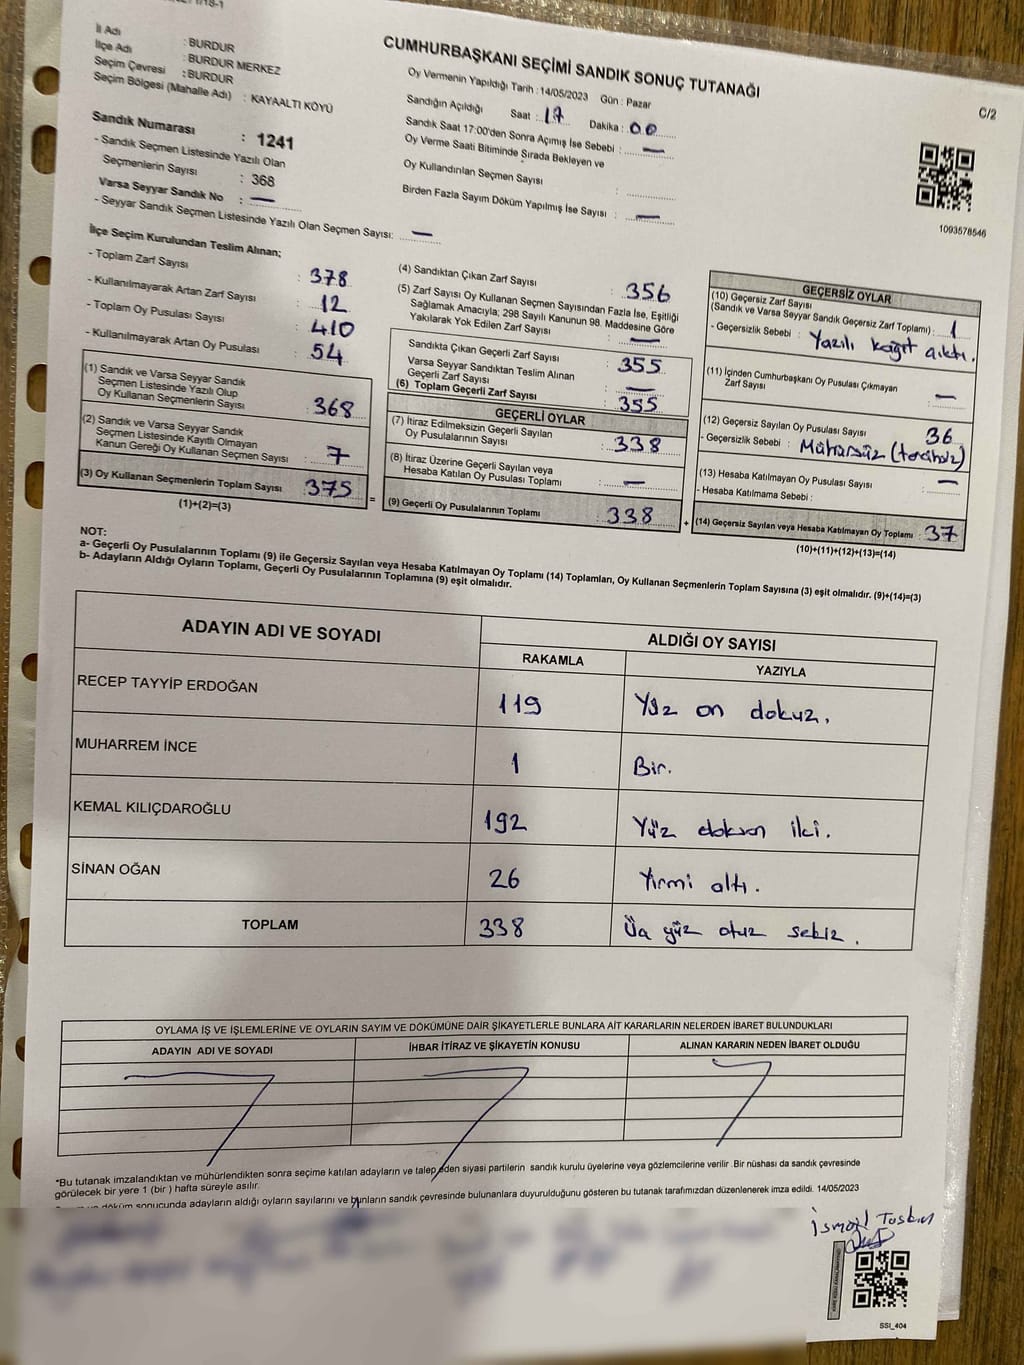 CUMHURBAŞKANI SEÇİMİ SANDIK SONUÇ TUTANAĞI
C/2
İl Adı : BURDUR
İlçe Adı : BURDUR MERKEZ
Seçim Çevresi : BURDUR
Seçim Bölgesi (Mahalle Adı) : KAYAALTI KÖYÜ
Sandık Numarası : 1241
- Sandık Seçmen Listesinde Yazılı Olan
Seçmenlerin Sayısı : 368
Varsa Seyyar Sandık No : —
- Seyyar Sandık Seçmen Listesinde Yazılı Olan Seçmen Sayısı: —
Oy Vermenin Yapıldığı Tarih : 14/05/2023 Gün : Pazar
Sandığın Açıldığı Saat : 17 Dakika : 00
Sandık Saat 17:00'den Sonra Açımış İse Sebebi : —
Oy Verme Saati Bitiminde Sırada Bekleyen ve
Oy Kullandırılan Seçmen Sayısı :
Birden Fazla Sayım Döküm Yapılmış İse Sayısı : —
1093578546
İlçe Seçim Kurulundan Teslim Alınan;
- Toplam Zarf Sayısı : 378
- Kullanılmayarak Artan Zarf Sayısı : 12
- Toplam Oy Pusulası Sayısı : 410
- Kullanılmayarak Artan Oy Pusulası : 54
(1) Sandık ve Varsa Seyyar Sandık
Seçmen Listesinde Yazılı Olup
Oy Kullanan Seçmenlerin Sayısı : 368
(2) Sandık ve Varsa Seyyar Sandık
Seçmen Listesinde Kayıtlı Olmayan
Kanun Gereği Oy Kullanan Seçmen Sayısı : 7
(3) Oy Kullanan Seçmenlerin Toplam Sayısı : 375
(1)+(2)=(3)
=
(4) Sandıktan Çıkan Zarf Sayısı : 356
(5) Zarf Sayısı Oy Kullanan Seçmen Sayısından Fazla İse, Eşitliği
Sağlamak Amacıyla; 298 Sayılı Kanunun 98. Maddesine Göre
Yakılarak Yok Edilen Zarf Sayısı : —
Sandıkta Çıkan Geçerli Zarf Sayısı : 355
Varsa Seyyar Sandıktan Teslim Alınan
Geçerli Zarf Sayısı : —
(6) Toplam Geçerli Zarf Sayısı : 355
GEÇERLİ OYLAR
(7) İtiraz Edilmeksizin Geçerli Sayılan
Oy Pusulalarının Sayısı : 338
(8) İtiraz Üzerine Geçerli Sayılan veya
Hesaba Katılan Oy Pusulası Toplamı : —
(9) Geçerli Oy Pusulalarının Toplamı : 338
+
GEÇERSİZ OYLAR
(10) Geçersiz Zarf Sayısı
(Sandık ve Varsa Seyyar Sandık Geçersiz Zarf Toplamı) : 1
- Geçersizlik Sebebi : Yazılı kağıt çıktı.
(11) İçinden Cumhurbaşkanı Oy Pusulası Çıkmayan
Zarf Sayısı : —
(12) Geçersiz Sayılan Oy Pusulası Sayısı : 36
- Geçersizlik Sebebi : Mühürsüz
(13) Hesaba Katılmayan Oy Pusulası Sayısı : —
- Hesaba Katılmama Sebebi :
(14) Geçersiz Sayılan veya Hesaba Katılmayan Oy Toplamı : 37
(10)+(11)+(12)+(13)=(14)
NOT:
a- Geçerli Oy Pusulalarının Toplamı (9) ile Geçersiz Sayılan veya Hesaba Katılmayan Oy Toplamı (14) Toplamları, Oy Kullanan Seçmenlerin Toplam Sayısına (3) eşit olmalıdır. (9)+(14)=(3)
b- Adayların Aldığı Oyların Toplamı, Geçerli Oy Pusulalarının Toplamına (9) eşit olmalıdır.
ADAYIN ADI VE SOYADI ALDIĞI OY SAYISI
RAKAMLA YAZIYLA
RECEP TAYYİP ERDOĞAN 119 Yüz on dokuz.
MUHARREM İNCE 1 Bir.
KEMAL KILIÇDAROĞLU 192 Yüz doksan iki.
SİNAN OĞAN 26 Yirmi altı.
TOPLAM 338 Üç yüz otuz sekiz.
OYLAMA İŞ VE İŞLEMLERİNE VE OYLARIN SAYIM VE DÖKÜMÜNE DAİR ŞİKAYETLERLE BUNLARA AİT KARARLARIN NELERDEN İBARET BULUNDUKLARI
ADAYIN ADI VE SOYADI İHBAR İTİRAZ VE ŞİKAYETİN KONUSU ALINAN KARARIN NEDEN İBARET OLDUĞU
*Bu tutanak imzalandıktan ve mühürlendikten sonra seçime katılan adayların ve talep eden siyasi partilerin sandık kurulu üyelerine veya gözlemcilerine verilir .Bir nüshası da sandık çevresinde
görülecek bir yere 1 (bir ) hafta süreyle asılır.
döküm sonucunda adayların aldığı oyların sayılarını ve bunların sandık çevresinde bulunanlara duyurulduğunu gösteren bu tutanak tarafımızdan düzenlenerek imza edildi. 14/05/2023
İsmail
SSI_404